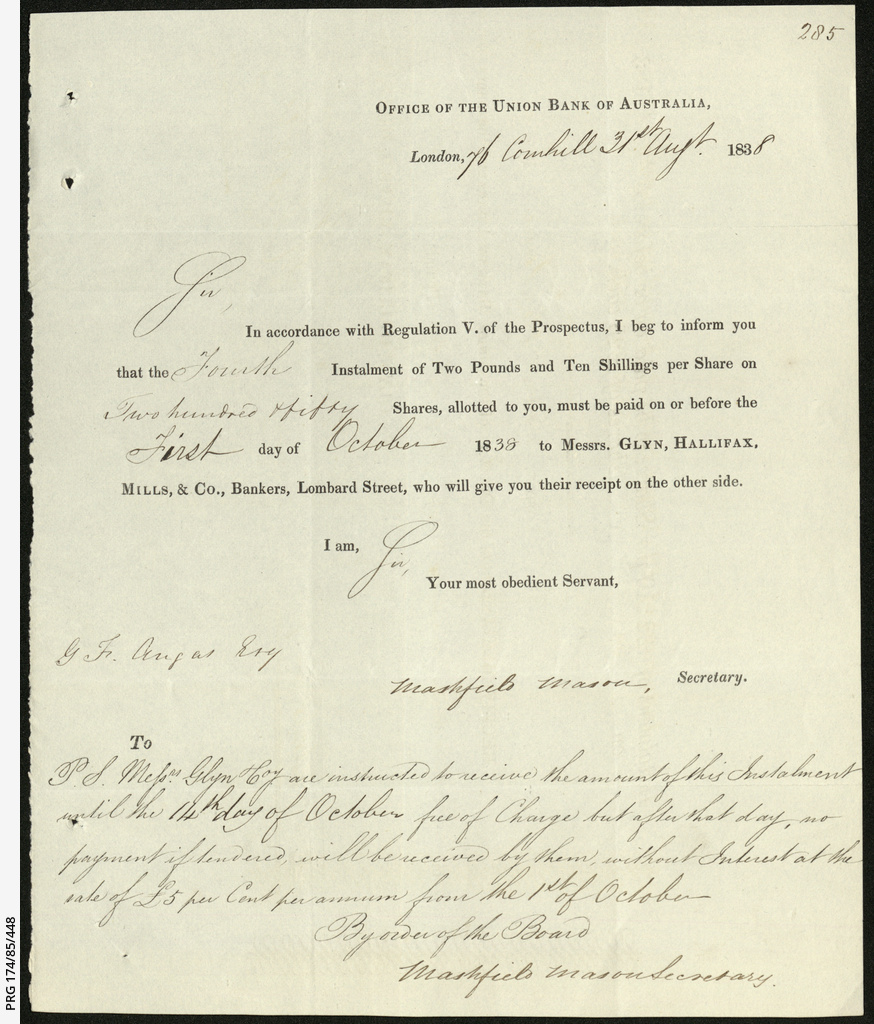 285
OFFICE OF THE UNION BANK OF AUSTRALIA,
London, 76 Cornhill 31st Augt. 1838
Sir,
In accordance with Regulation V. of the Prospectus, I beg to inform you
that the Fourth Instalment of Two Pounds and Ten Shillings per Share on
Two hundred & fifty Shares, allotted to you, must be paid on or before the
First day of October 1838 to Messrs. GLYN, HALLIFAX,
MILLS, & Co., Bankers, Lombard Street, who will give you their receipt on the other side.
I am, Sir,
Your most obedient Servant,
G F. Angas Esq
Mashfield Mason, Secretary.
To
P. S. Messrs. Glyn & Coy are instructed to receive the amount of this Instalment
until the 14th day of October free of Charge but after that day, no
payment if tendered, will be received by them, without Interest at the
rate of £5 per Cent per annum from the 1st of October
By order of the Board
Mashfield Mason Secretary.
PRG 174/85/448